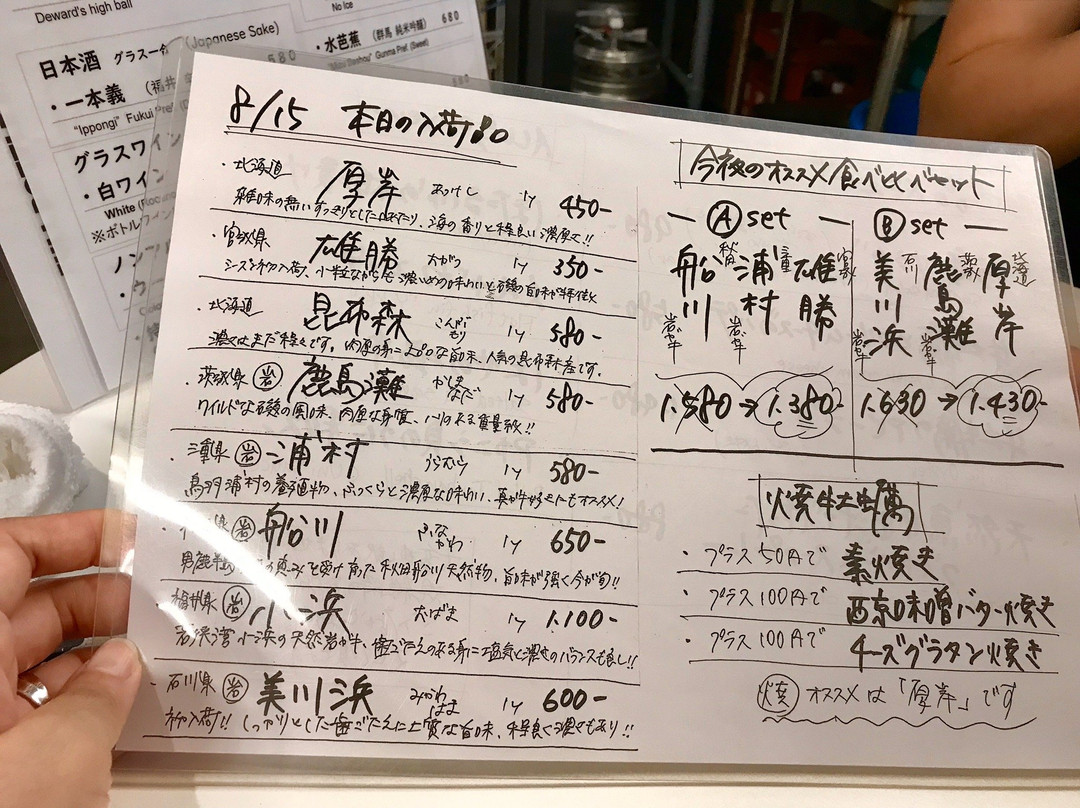 Deward's high ball
日本酒 グラス一合 (Japanese Sake)
580
・一本義 (福井
"Ippongi" Fukui Pref
グラスワイン
・白ワイン
White
※ボトルワイン
No Ice
・水芭蕉 (群馬 純米吟醸) 680
Gunma Pref. (Sweet)
8/15 本日の入荷
・北海道 厚岸 あっけし 1ヶ 450-
雑味の無いすっきりとした口あたり、海の香りと程良い濃厚さ!!
・宮城県 雄勝 おがつ 1ヶ 350-
シーズン初入荷、小粒ながらも濃いめの味わいと
・北海道 昆布森 こんぶもり 1ヶ 580-
濃さはまだ軽めです。肉厚の身に上品な旨味、人気の昆布森産です。
・茨城県 岩 鹿島灘 かしまなだ 1ヶ 580-
ワイルドな石磯の風味、肉厚な身質、
・三重県 岩 浦村 うらむら 1ヶ 580-
鳥羽浦村の養殖物、ふっくらと濃厚な味わい、真がき好きにもオススメ!
県 岩 船川 ふなかわ 1ヶ 650-
男鹿半島 の恵みを受け育った秋田船川天然物、旨味が強く今が旬!!
・福井県 岩 小浜 おばま 1ヶ 1.100-
若狭湾小浜の天然岩がき、歯ごたえのある身に塩気と濃さのバランスも良し!!
・石川県 岩 美川浜 みかわはま 1ヶ 600-
初入荷!! しっかりとした歯ごたえに上質な旨味、程良く濃さもあり!!
今夜のオススメ食べ比べセット
― Ⓐ set ―
船川 秋田 岩がき
浦村 三重 岩がき
雄勝 宮城
1.580→1.380-
― Ⓑ set ―
美川浜 石川 岩がき
鹿島灘 茨城 岩がき
厚岸 北海道
1.630→1.430-
焼牡蠣
・プラス50円で 素焼き
・プラス100円で 西京味噌バター焼き
・プラス100円で チーズグラタン焼き
焼 オススメは「厚岸」です